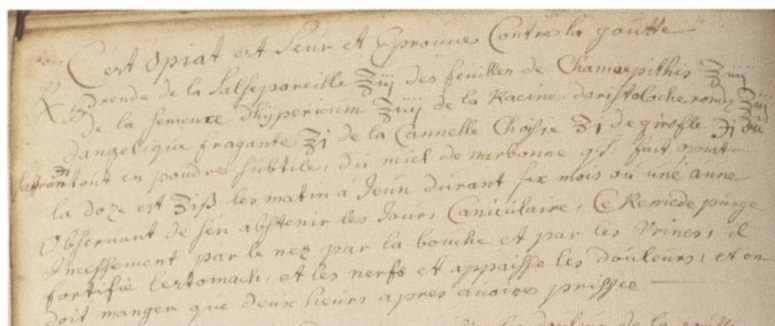 Cest Opiat est Seur et Eprouue Contre la goutte
℞ Prende de la Salsepareille ʒiij des feuilles de Chamæpithis ʒiiij
de la semence dhÿpericum ʒiiij de la Racine daristoloche ronde ʒij
dangelique fragante ʒi de la Cannelle Choisie ʒi de girofle ℈i du
saffran tout en poudres subtile, du miel de narbonne q.s. fait opiat
la doze est ʒiß les matin a Jeun durant six mois ou une anne
Obseruant de sen abstenir les Jours Caniculaire, Ce Remede purge
Incessement par le nez par la bouche et par les Vrines, il
fortifie lestomach, et les nerfs et appaisse les douleurs, et on
doit manger que deux heurs apres auoire prisse